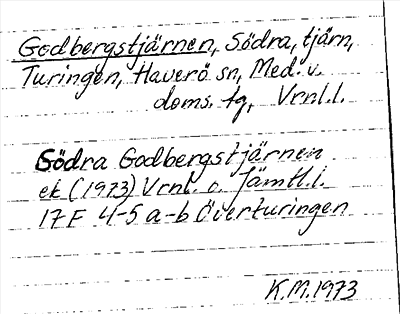 Godbergstjärnen, Södra, tjärn,
Turingen, Haverö sn, Med. v.
doms. tg, Vrnl.l.
Södra Godbergstjärnen
ek (1973) Vrnl. o. Jämtl.l.
17 F 4-5 a-b Överturingen
K.M. 1973